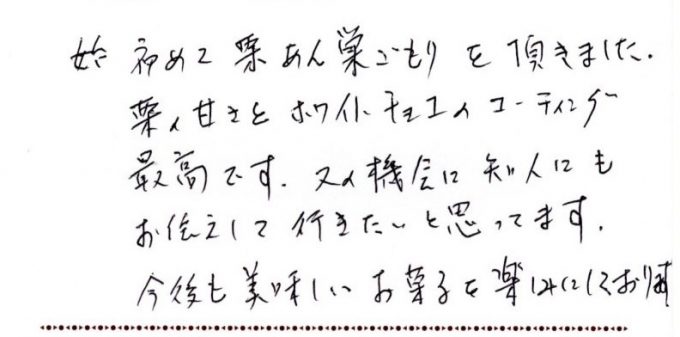 始 初めて 栗あん巣ごもりを頂きました.
栗の甘さとホワイトチョコのコーティング
最高です. 又の機会に知人にも
お伝えして行きたいと思ってます.
今後も美味しいお菓子を楽しみにしております